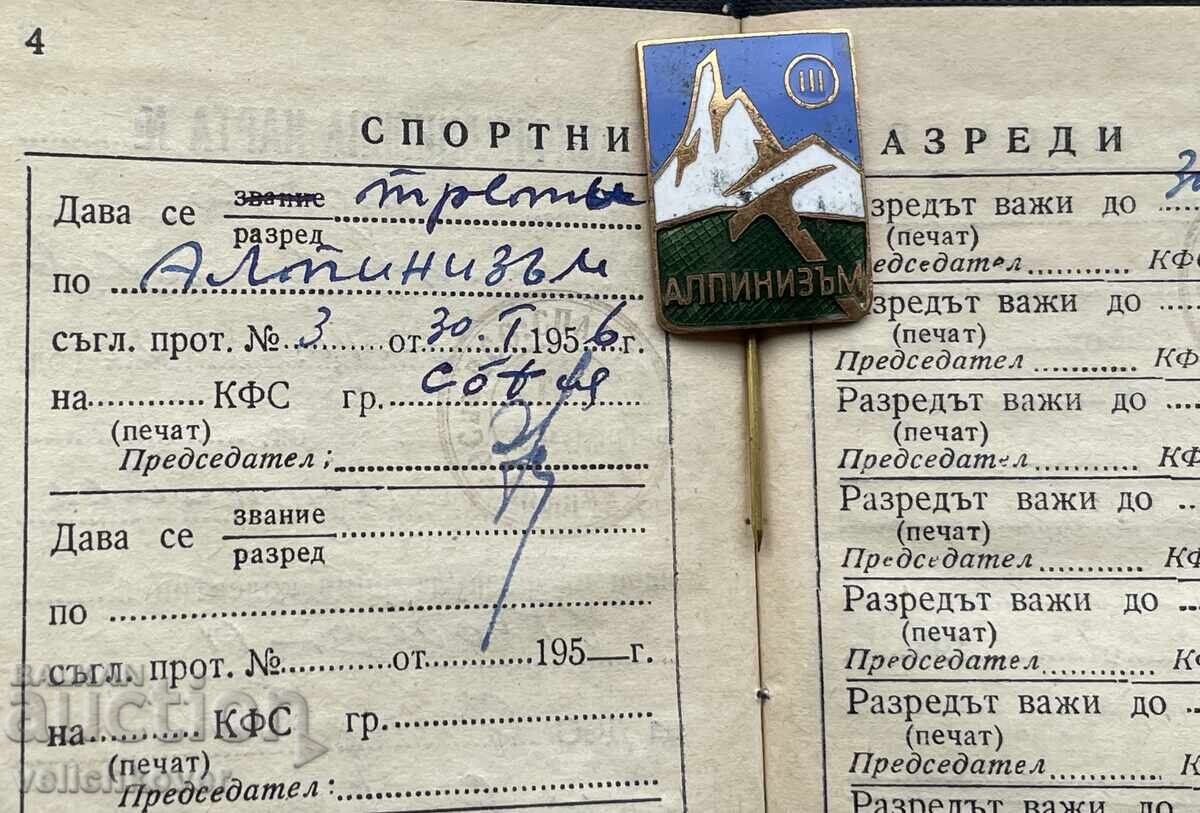 4
СПОРТНИ АЗРЕДИ
Дава се звание трети
разред
по Алпинизъм
съгл. прот. № 3 от 30.I 1956 г.
на КФС гр. София
(печат)
Председател:
Дава се звание
разред
по
съгл. прот. № от 195 г.
на КФС гр.
(печат)
Председател:
III
АЛПИНИЗЪМ
азредът важи до
(печат)
едседател КФ
азредът важи до
(печат)
Председател КФ
Разредът важи до
(печат)
Председател КФ
Разредът важи до
(печат)
Председател КФ
Разредът важи до
(печат)
Председател К
Разредът важи до
(печат)
Председател К
Разредът важи до
BALKAN
auction
velichkovor